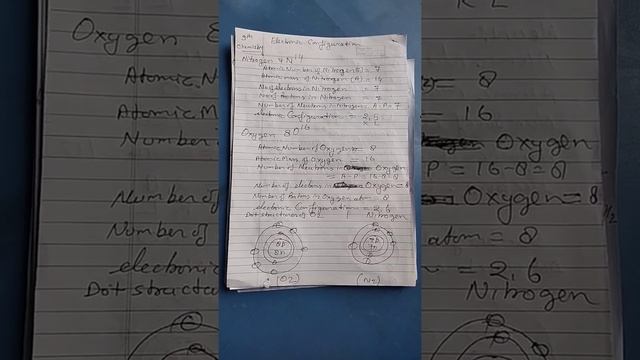 9th
Chemistry
Electronic Configuration
Nitrogen 7N14
Atomic Number of Nitrogen(Z) = 7
Atomic mass of Nitrogen (A) = 14
No of electrons in Nitrogen = 7
No of Protons in Nitrogen = 7
Number of Neutrons in Nitrogen = A-P = 7
electronic Configuration = 2,5
K L
Oxygen 8O16
Atomic Number of Oxygen = 8
Atomic Mass of Oxygen = 16
Number of Neutrons in Oxygen
= A-P = 16-8 = 8
Number of electrons in Oxygen = 8
Number of Protons in Oxygen atom = 8
electronic Configuration = 2,6
Dot structure of O2 Nitrogen
8P
8n
7P
7n
(O2) (N2)